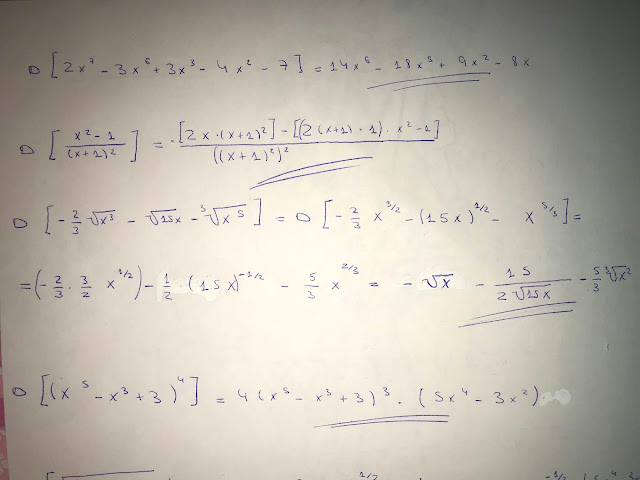 D [2x⁷ - 3x⁶ + 3x³ - 4x² - 7] = 14x⁶ - 18x⁵ + 9x² - 8x
D [(x² - 1)/(x+1)²] = [2x·(x+1)²] - [(2(x+1)·1)·x² - 1] / ((x+1)²)²
D [-2/3 √x³ - √15x - ³√x⁵] = D [-2/3 x^3/2 - (15x)^1/2 - x^5/3] =
= (-2/3 · 3/2 x^1/2) - 1/2 · (15x)^-1/2 - 5/3 x^2/3 = - √x - 15/(2√15x) - 5/3 ³√x²
D [(x⁵ - x³ + 3)⁴] = 4(x⁵ - x³ + 3)³ · (5x⁴ - 3x²)